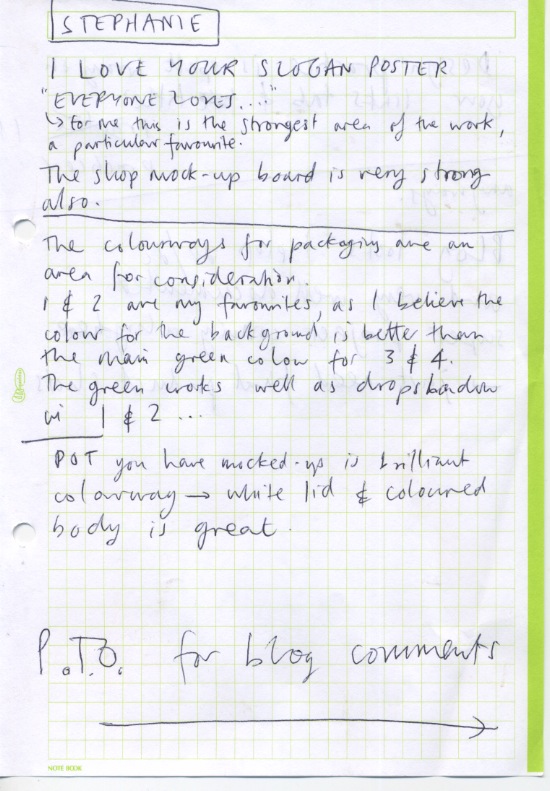 STEPHANIE
I LOVE YOUR SLOGAN POSTER
"EVERYONE LOVES,..."
↳ for me this is the strongest area of the work,
a particular favourite.
The shop mock-up board is very strong
also.
The colourways for packaging are an
area for consideration.
1 & 2 are my favourites, as I believe the
colour for the background is better than
the main green colour for 3 & 4.
The green works well as dropshadow
in 1 & 2 ...
POT you have mocked-up is brilliant
colourway → white lid & coloured
body is great.
P.T.O. for blog comments